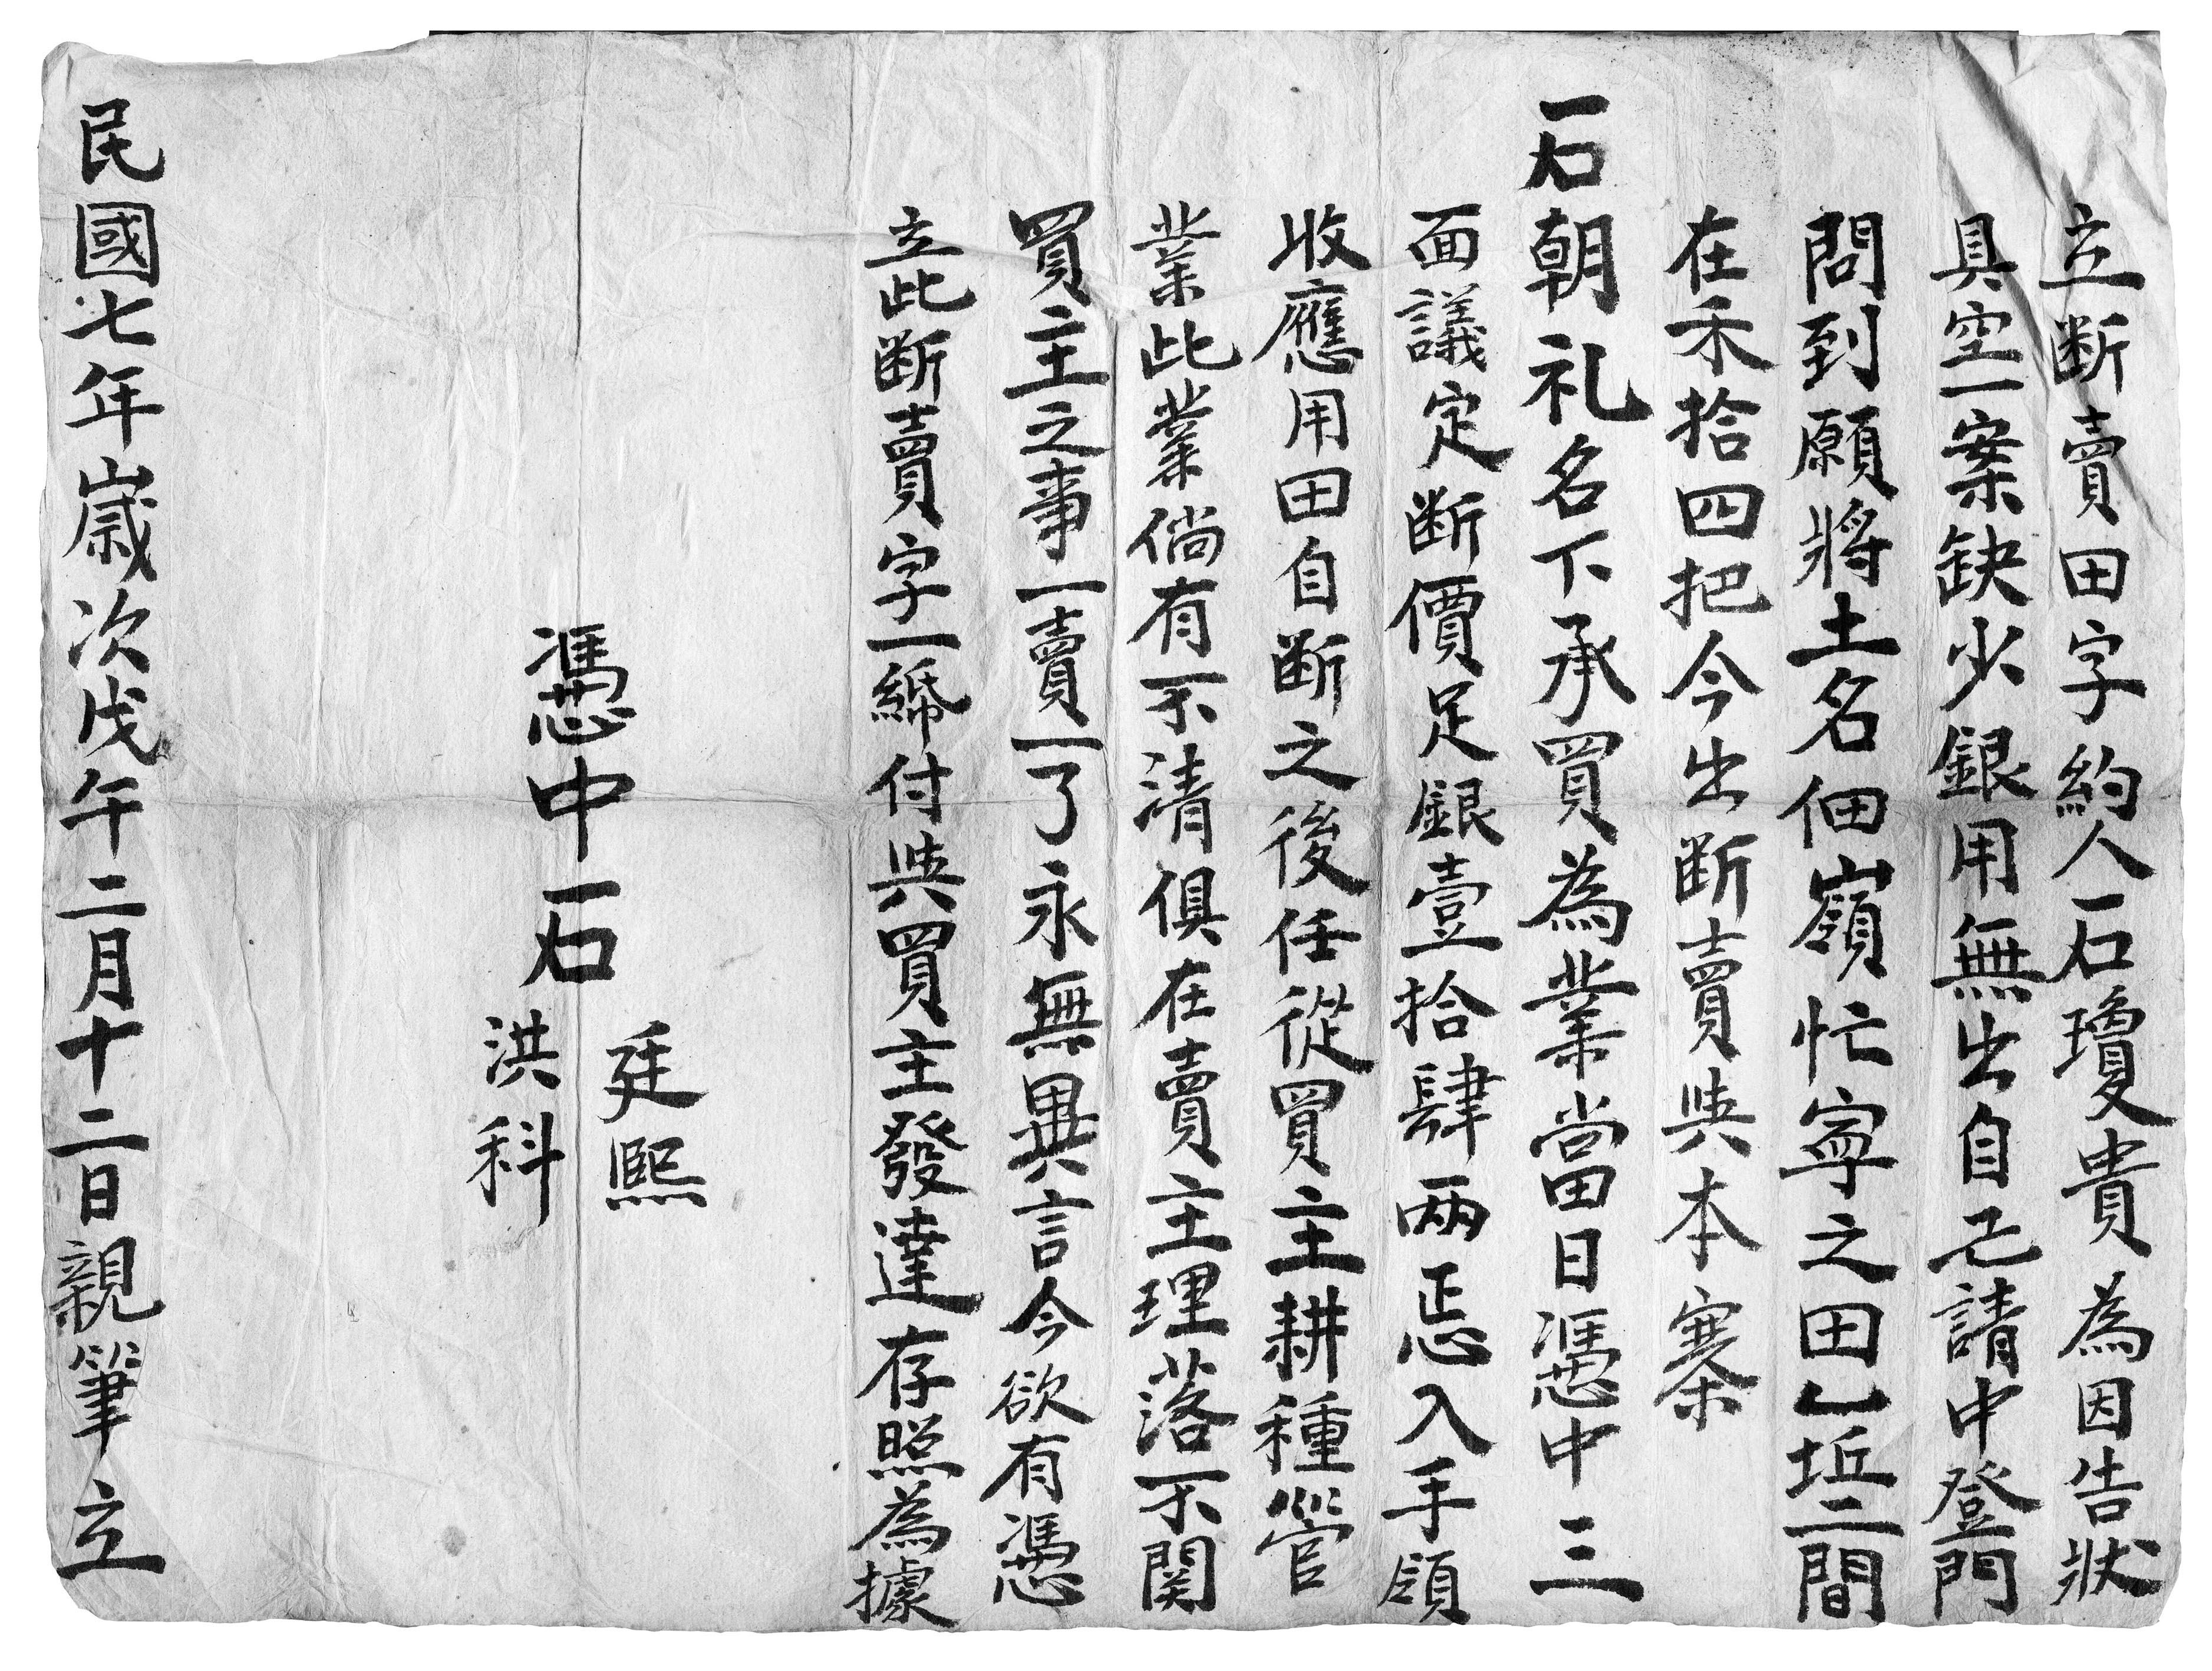 立断賣田字約人石瓊貴為因告狀
具空一案缺少銀用無出自己請中登門
問到願將土名佃嶺忙寧之田乚坵二間
在禾拾四把今出断賣與本寨
石朝礼名下承買為業當日憑中三
面議定断價足銀壹拾肆兩㤏入手領
收應用田自断之後任從買主耕種管
業此業倘有不清俱在賣主理落不関
買主之事一賣一了永無異言今欲有憑
立此断賣字一締付與買主發達存照為據
憑中石
廷熙
洪科
民國七年歲次戊午二月十二日親筆立